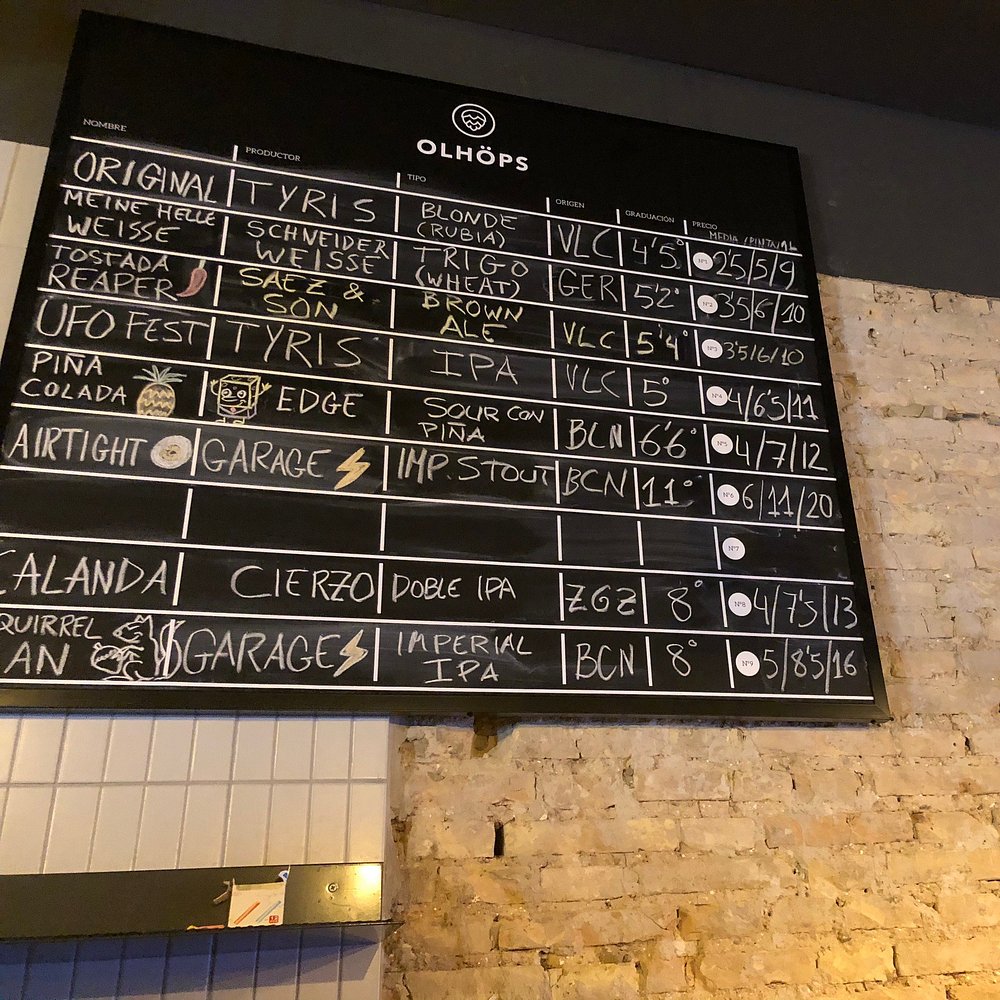 OLHÖPS
NOMBRE PRODUCTOR TIPO ORIGEN GRADUACIÓN PRECIO
MEDIA/PINTA/1L
ORIGINAL TYRIS BLONDE (RUBIA) VLC 4'5° Nº1 2'5/5/9
MEINE HELLE WEISSE SCHNEIDER WEISSE TRIGO (WHEAT) GER 5'2° Nº2 3'5/6/10
TOSTADA REAPER SAEZ & SON BROWN ALE VLC 5'4° Nº3 3'5/6/10
UFO FEST TYRIS IPA VLC 5° Nº4 4/6'5/11
PIÑA COLADA EDGE SOUR CON PIÑA BCN 6'6° Nº5 4/7/12
AIRTIGHT GARAGE IMP. STOUT BCN 11° Nº6 6/11/20
Nº7
CALANDA CIERZO DOBLE IPA ZGZ 8° Nº8 4/7'5/13
QUIRREL AN GARAGE IMPERIAL IPA BCN 8° Nº9 5/8'5/16